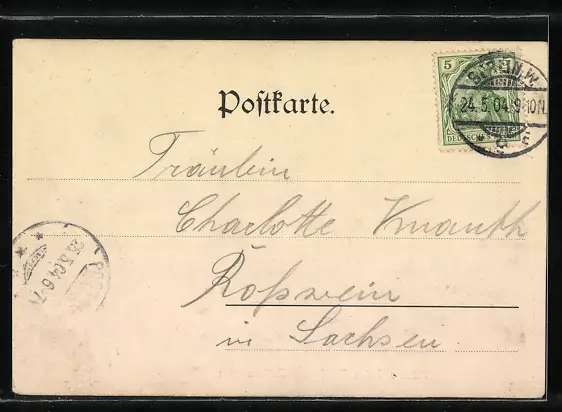 Postkarte.
5
BERLIN.W.
24.5.04.9-10N.
DEUTSCHES
Fräulein
Charlotte Knauth
Roßwein
in Sachsen.
25.5.04.6-7